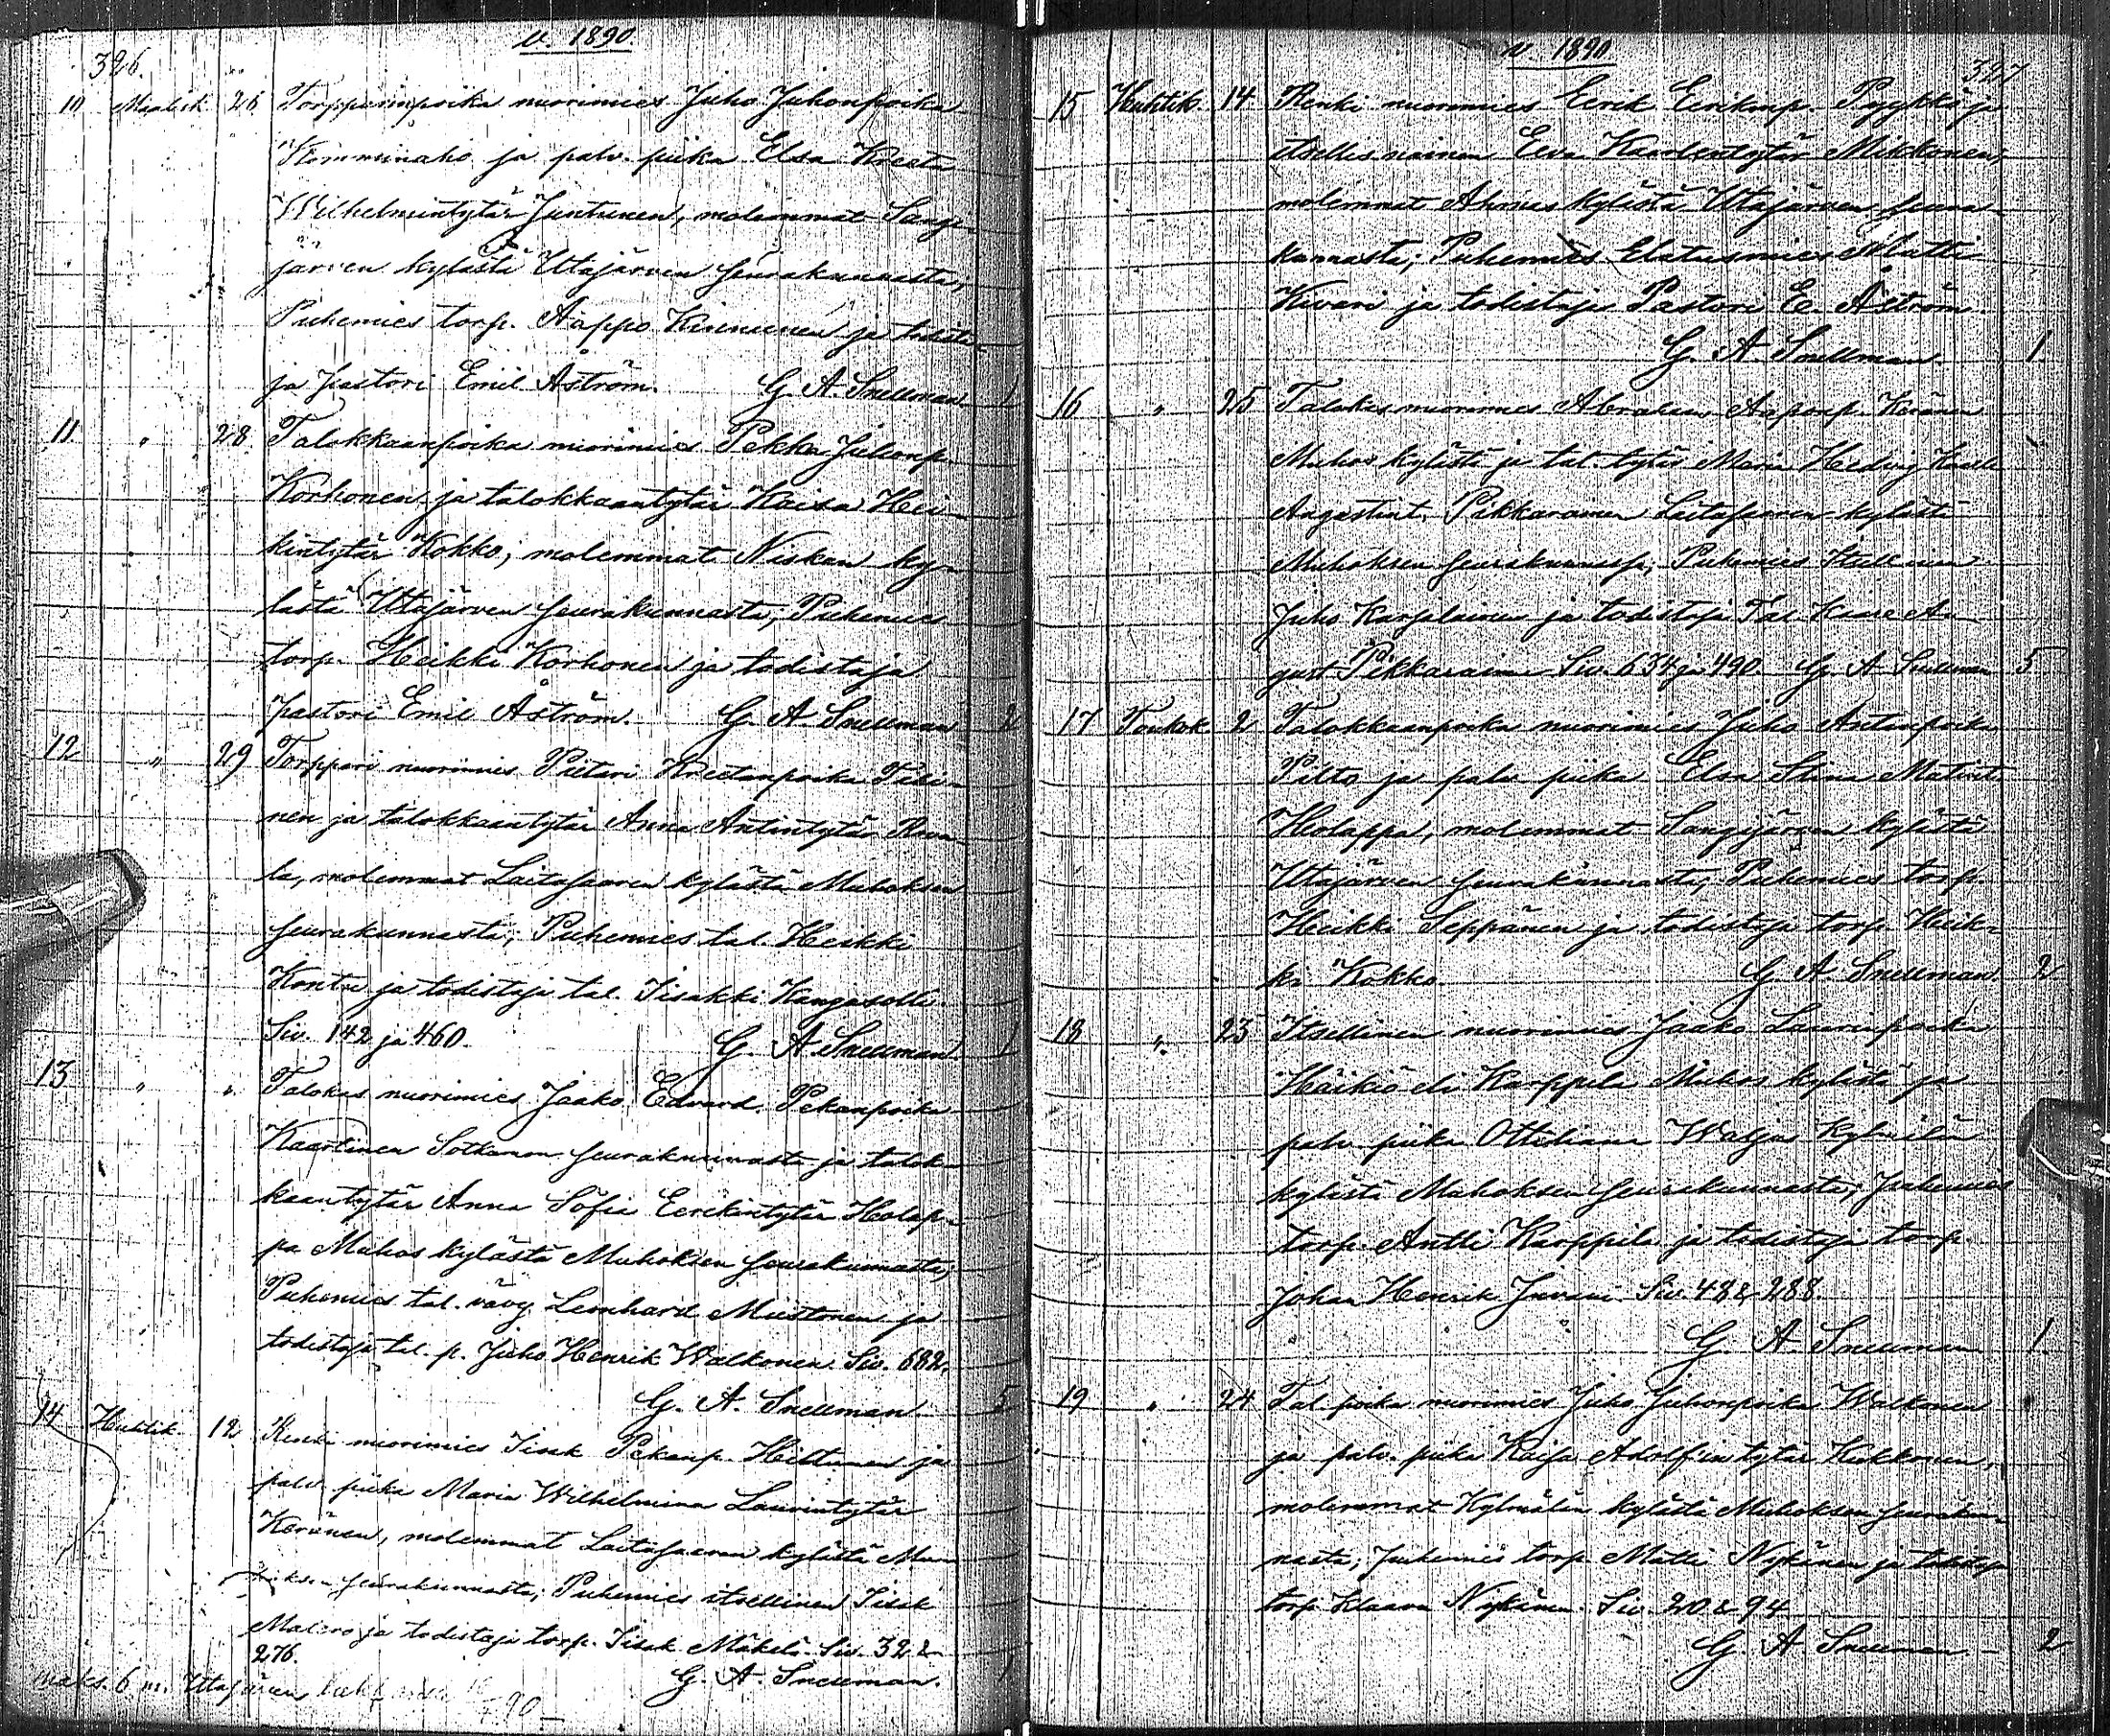 v. 1890.
326.
10 Maalisk. 26 Torpparinpoika nuorimies Juho Juhonpoika
Kemminaho ja palv. piika Elsa Kreeta
Wilhelmintytär Juntunen, molemmat Sangi-
järven kylästä Utajärven seurakunnasta;
Puhemies torp. Aappo Kinnunen ja todista-
ja pastori Emil Åström. G. A. Snellman. 1
11. " 28 Talokkaanpoika nuorimies Pekka Juhonp.
Korhonen ja talokkaantytär Kaisa Hei-
kintytär Kokko; molemmat Niskan ky-
lästä Utajärven seurakunnasta; Puhemies
torp. Heikki Korhonen ja todistaja
pastori Emil Åström. G. A. Snellman 2
12 " 29 Torppari nuorimies Pietari Kreetanpoika
nen ja talokkaantytär Anna Antintytär
la, molemmat Laitasaaren kylästä Muhoksen
seurakunnasta; Puhemies tal. Heikki
Kontu ja todistaja tal. Iisakki Kangasolli.
Siv. 142 ja 460. G. A. Snellman. 1
13 " " Talokas nuorimies Jaako Edvard Pekanpoika
Kaartinen Sotkamon seurakunnasta ja talok-
kaantytär Anna Sofia Eerikintytär Holap-
pa Muhos kylästä Muhoksen seurakunnasta;
Puhemies tal. vävy Leonhard Mustonen ja
todistaja tal. p. Juho Henrik Walkonen. Siv. 682.
G. A. Snellman. 5
14 Huhtik. 12 Renki nuorimies Iisak Pekanp. Hiltunen ja
palv. piika Maria Wilhelmina Laurintytär
Keränen, molemmat Laitasaaren kylästä Mu-
hoksen seurakunnasta; Puhemies itsellinen Iisak
ja todistaja torp. Iisak Mäkelä. Siv. 32 &
276. G. A. Snellman. 1
maks. 6 m. Utajärven 90
v. 1890.
327
15 Huhtik. 14 Renki nuorimies Eerik Eerikinp. Pyykkö ja
itsellis nainen Eeva Kaarlentytär Mikkonen,
molemmat Ahmas kylästä Utajärven seura-
kunnasta; Puhemies Elatusmies Matti
Kivari ja todistaja Pastori E. Åström.
G. A. Snellman. 1
16 " 25 Talokas nuorimies Abraham Aaponp. Keränen
Muhos kylästä ja tal. tytär Maria Hedvig Kaarle
Augustint. Pikkarainen Laitasaaren kylästä
Muhoksen seurakunnassa; Puhemies Itsellinen
Juho Karjalainen ja todistaja Tal. Kaarle Au-
gust Pikkarainen Siv. 634 ja 490. G. A. Snellman 5
17 Toukok. 2 Talokkaanpoika nuorimies Juho Antinpoika
Pilto ja palv. piika Elsa Stina Matint.
Holappa, molemmat Sangijärven kylästä
Utajärven seurakunnasta; Puhemies torp.
Heikki Seppänen ja todistaja torp. Heik-
ki Kokko. G. A. Snellman. 2
18 " 23 Itsellinen nuorimies Jaako Laurinpoika
Häikiö eli Karppila Muhos kylästä ja
palv. piika Ottiliana Waljus Kylmälän
kylästä Muhoksen seurakunnasta; puhemies
torp. Antti Karppila ja todistaja torp.
Johan Henrik Juvani. Siv. 48 & 288.
G. A. Snellman 1.
19 " 24 Tal. poika nuorimies Juho Juhonpoika Walkonen
ja palv. piika Kaisa Adolfintytär Kukkonen,
molemmat Kylmälän kylästä Muhoksen seurakun-
nasta; puhemies torp. Matti Nykänen ja todistaja
torp. Klaara Nykänen. Siv. 20 & 94
G. A. Snellman - 2